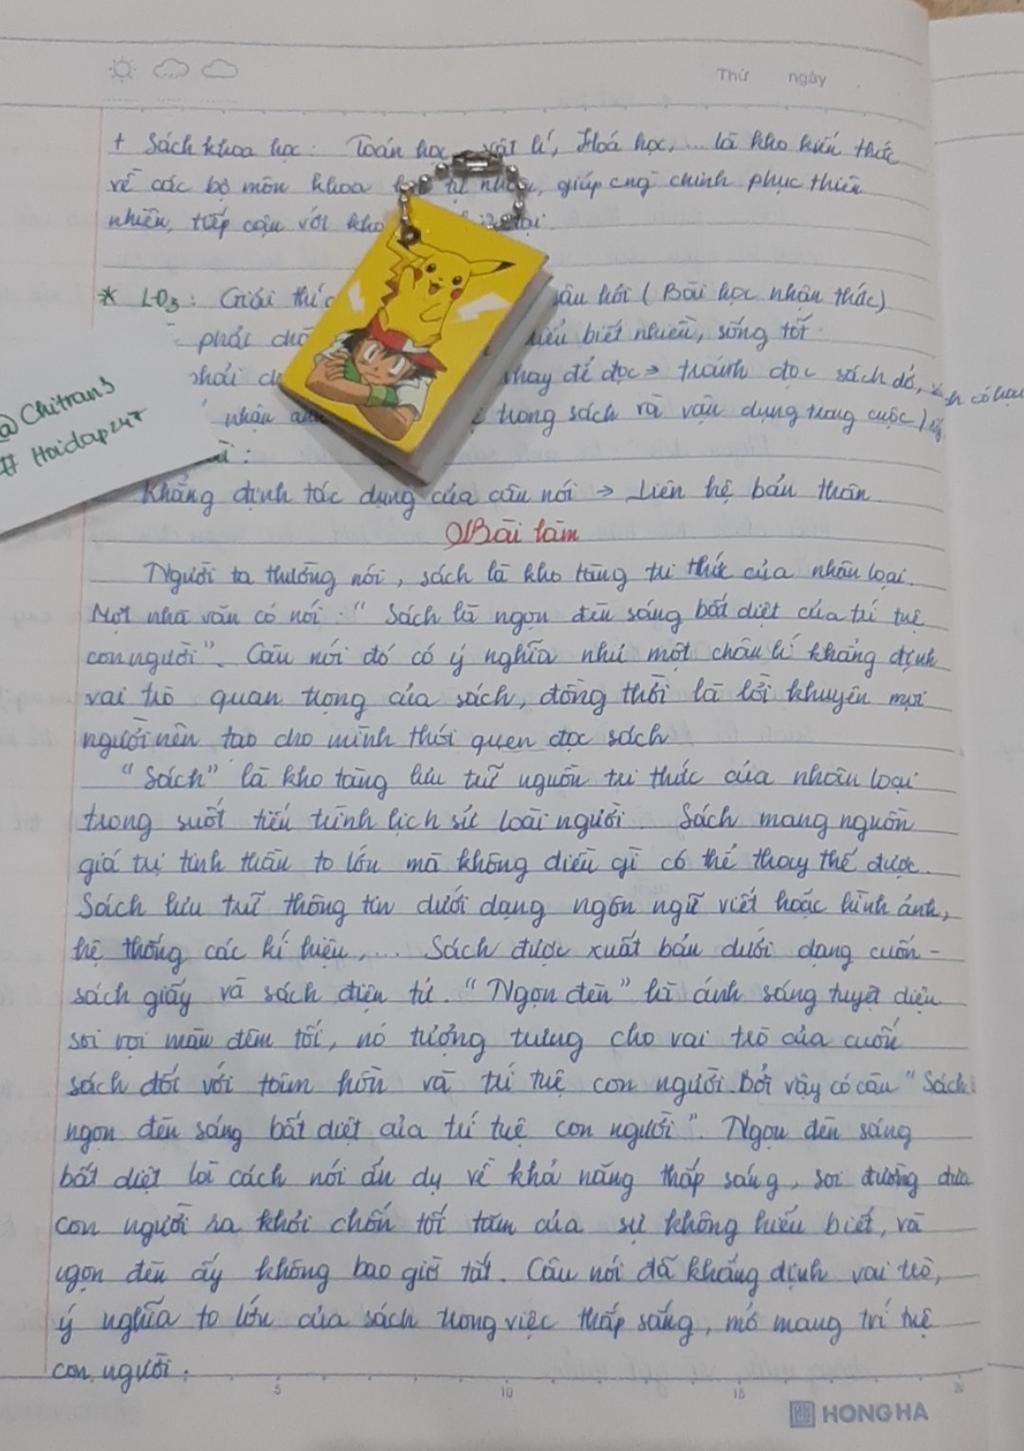 Thứ ngày
+ Sách khoa học: Toán học, vật lí, Hoá học,... là kho kiến thức
về các bộ môn khoa học tự nhiên, giúp cng chinh phục thiên
nhiên, tiếp cận với kho
* LĐ3: Giải thíc câu hỏi (Bài học nhận thức)
phải chă hiểu biết nhiều, sống tốt
phải c hay để đọc → tránh đọc sách dở, có hại
nhận trong sách và vận dụng trong cuộc
@Chitrans
# Hoidap247
Khẳng định tác dụng của câu nói → Liên hệ bản thân
Bài làm
Người ta thường nói, sách là kho tàng tri thức của nhân loại.
Một nhà văn có nói: "Sách là ngọn đèn sáng bất diệt của trí tuệ
con người". Câu nói đó có ý nghĩa như một chân lí khẳng định
vai trò quan trọng của sách, đồng thời là lời khuyên mọi
người nên tạo cho mình thói quen đọc sách
"Sách" là kho tàng lưu trữ nguồn tri thức của nhân loại
trong suốt tiến trình lịch sử loài người. Sách mang nguồn
giá trị tinh thần to lớn mà không điều gì có thể thay thế được.
Sách lưu trữ thông tin dưới dạng ngôn ngữ viết hoặc hình ảnh,
hệ thống các kí hiệu,... Sách được xuất bản dưới dạng cuốn
sách giấy và sách điện tử. "Ngọn đèn" là ánh sáng tuyệt diệu
soi rọi màn đêm tối, nó tượng trưng cho vai trò của cuốn
sách đối với tâm hồn và trí tuệ con người. Bởi vậy có câu "Sách
ngọn đèn sáng bất diệt của trí tuệ con người". Ngọn đèn sáng
bất diệt là cách nói ẩn dụ về khả năng thắp sáng, soi đường đưa
con người ra khỏi chốn tối tăm của sự không hiểu biết, và
ngọn đèn ấy không bao giờ tắt. Câu nói đã khẳng định vai trò,
ý nghĩa to lớn của sách trong việc thắp sáng, mở mang trí tuệ
con người.
5 10 15 20
HONG HA